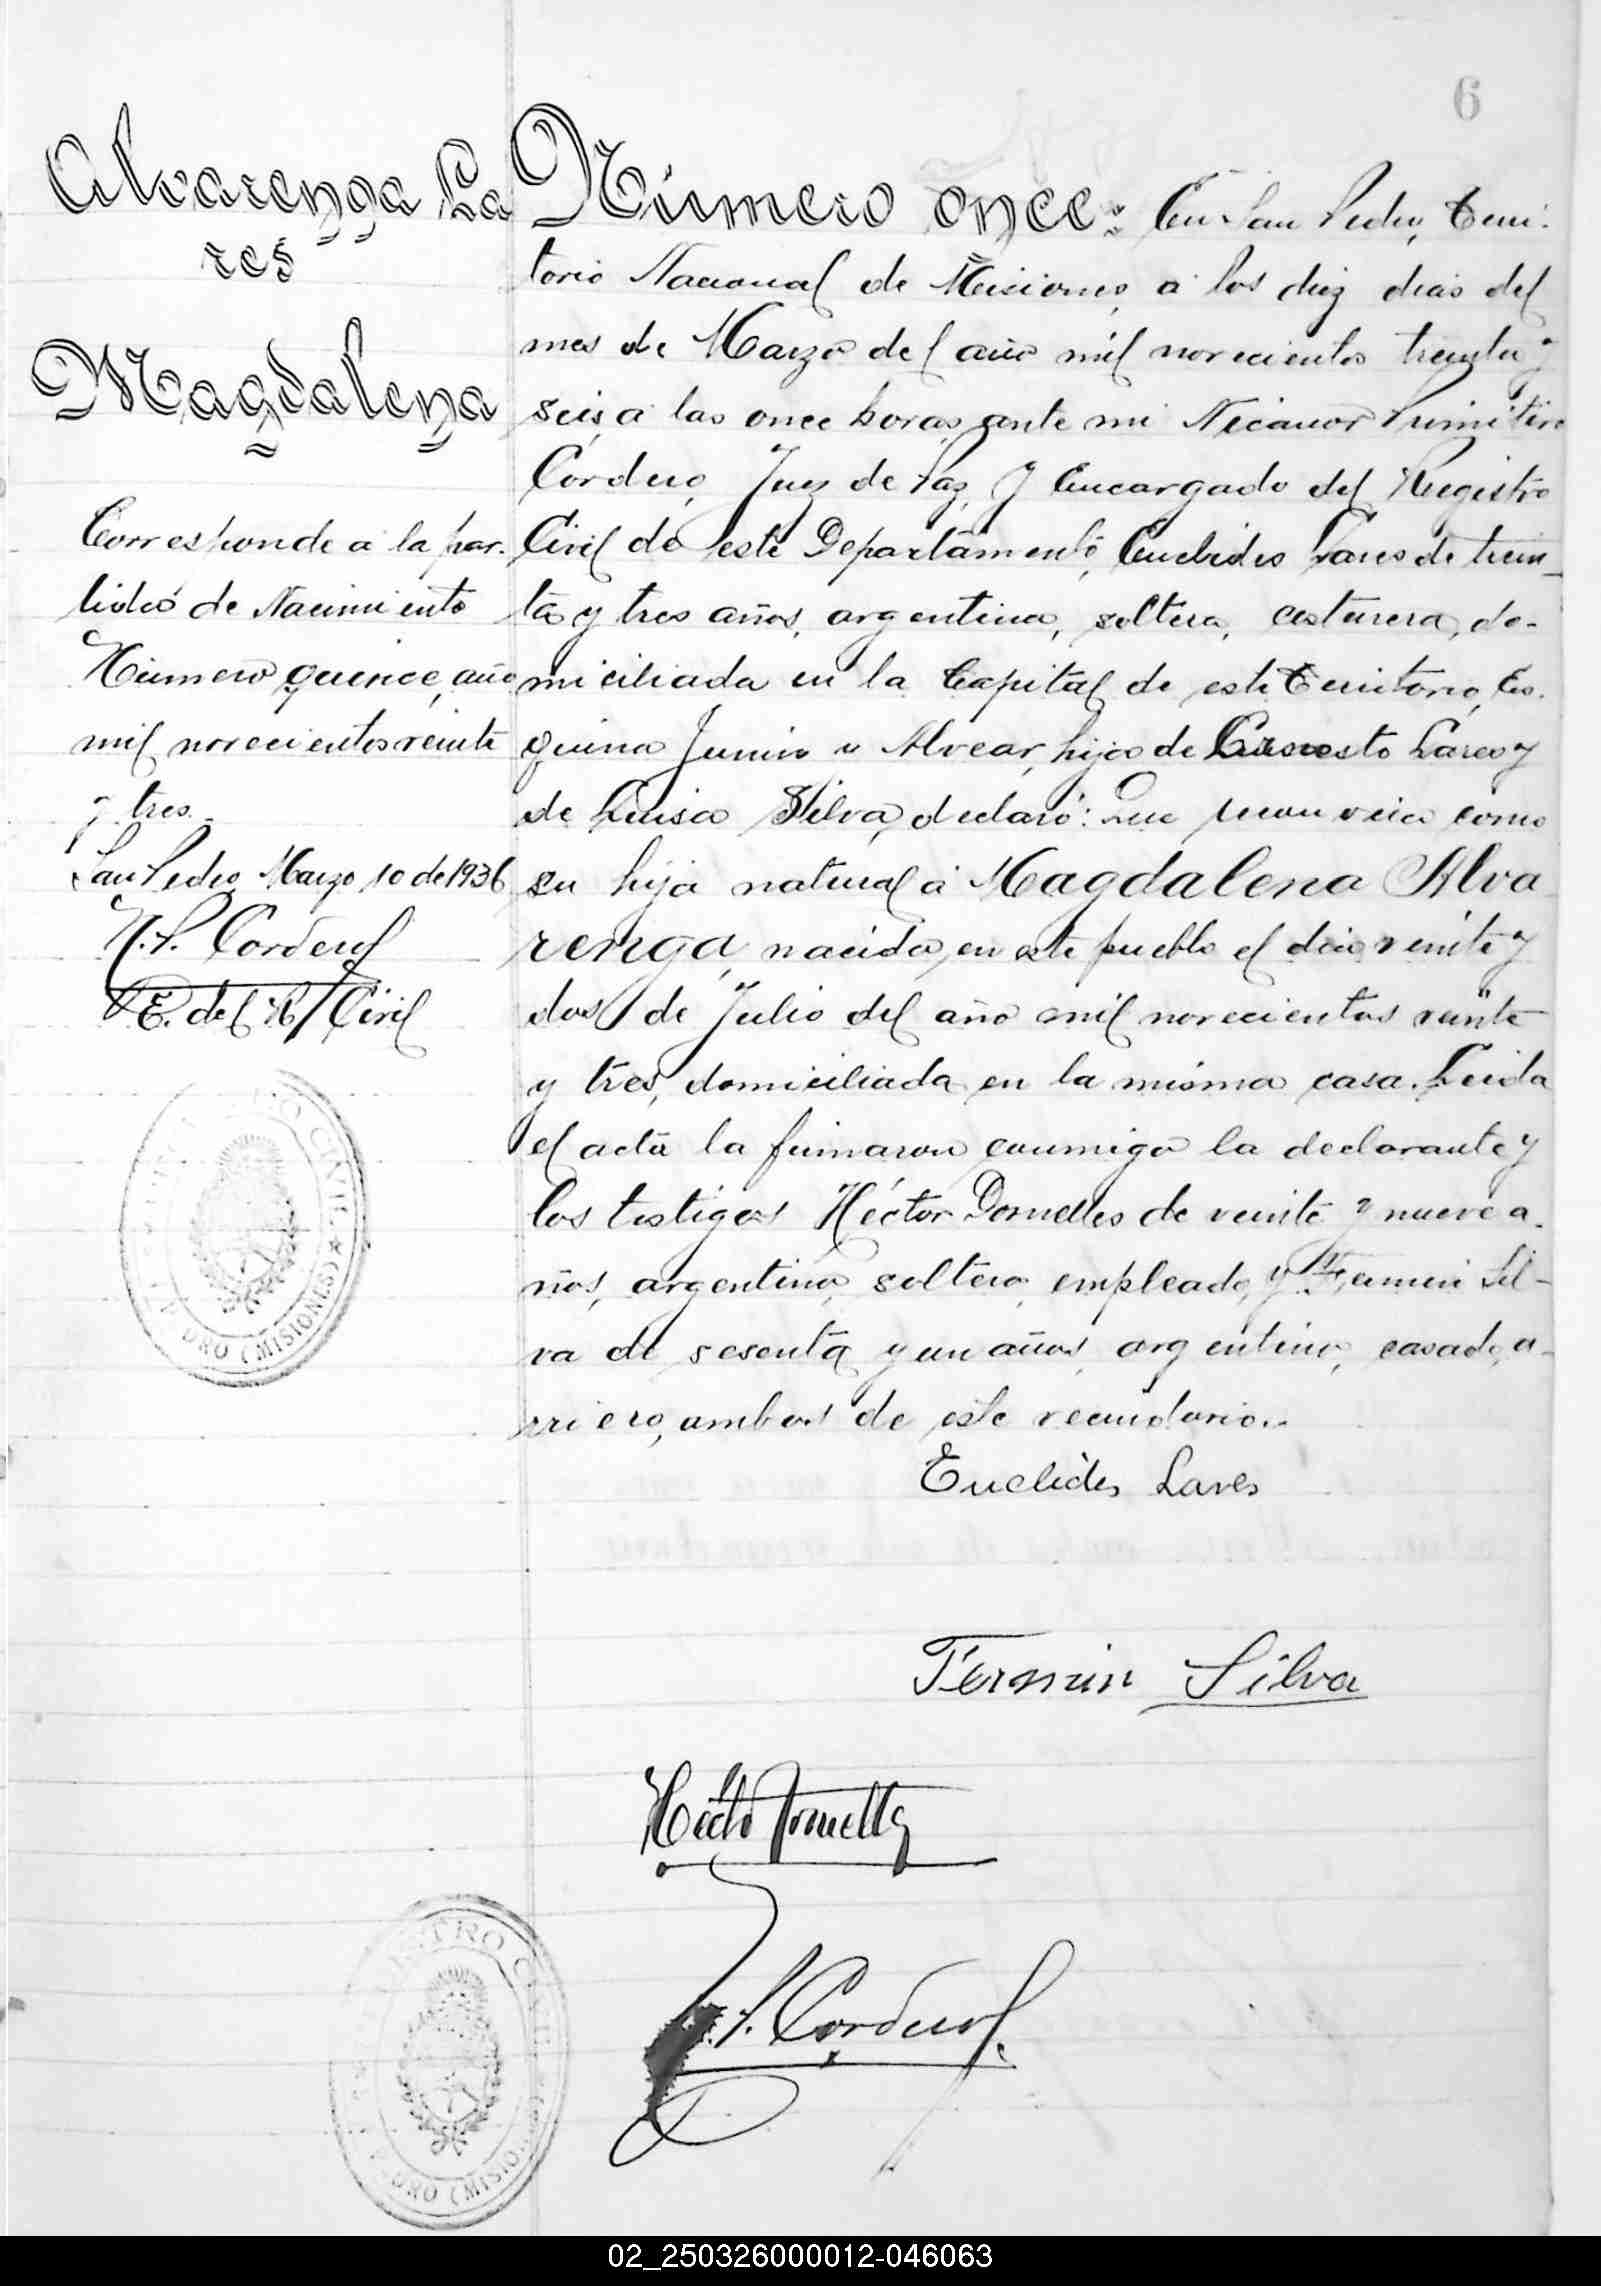 6
Alvarenga La
res
Magdalena
Corresponde á la par-
tida de Nacimiento
Número quince, año
mil novecientos veinte
y tres.
San Pedro, Marzo 10 de 1936
N. P. Cordero
E. del R/ Civil
Número once: En San Pedro, Terri-
torio Nacional de Misiones, á los diez dias del
mes de Marzo del año mil novecientos treinta y
seis, á las once horas, ante mi Nicanor Primitivo
Cordero, Juez de Paz, y Encargado del Registro
Civil de este Departamento, Euclides Lares de trein-
ta y tres años, argentina, soltera, costurera, do-
miciliada en la Capital de este Territorio, Es-
quina Junin y Alvear, hija de Ernesto Lares y
de Luisa Silva, declaró: Que reconocia como
su hija natural á Magdalena Alva
renga, nacida en este pueblo el dia veinte y
dos de Julio del año mil novecientos veinte
y tres, domiciliada en la misma casa. Leida
el acta la firmaron conmigo la declarante y
los testigos Héctor Dornelles de veinte y nueve a-
ños, argentino, soltero, empleado, y Fermin Sil-
va de sesenta y un años, argentino, casado, a-
rriero, ambos de este vecindario.
Euclides Lares
Fermin Silva
Héctor Dornelles
N. P. Cordero
REGISTRO CIVIL
PEDRO (MISIONES)
REGISTRO CIVIL
PEDRO (MISIONES)
02_250326000012-046063